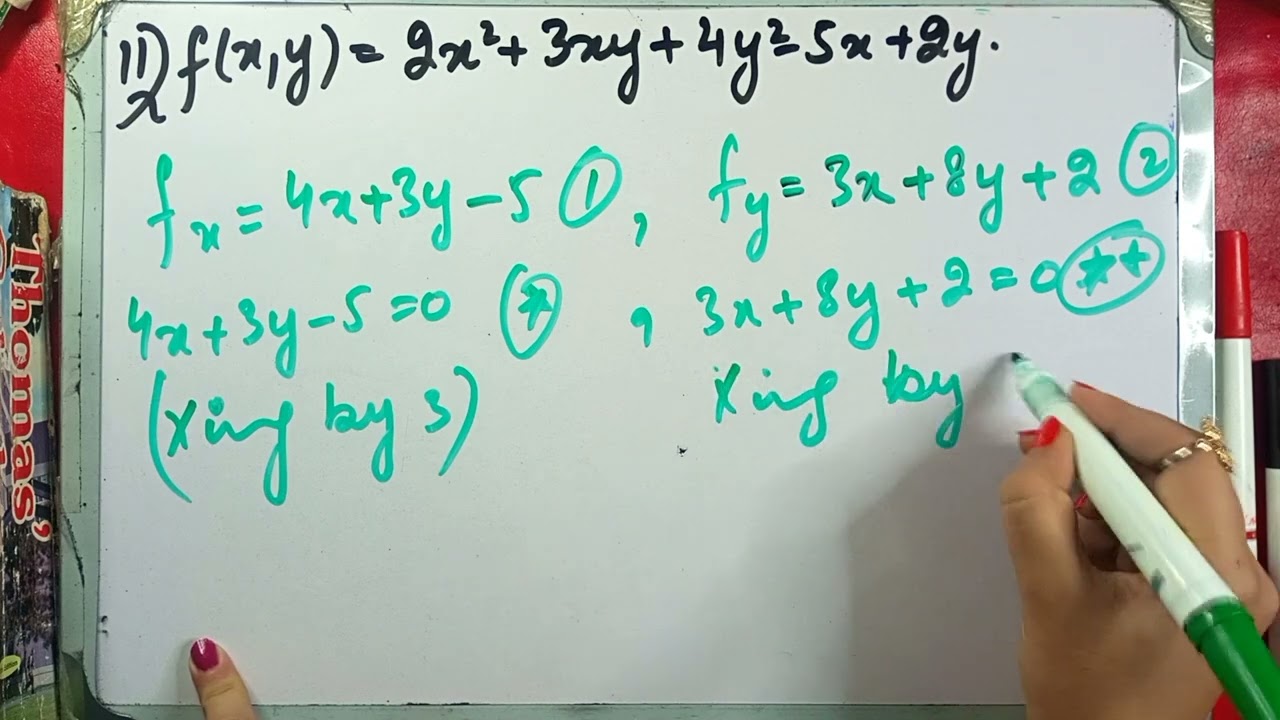 11) f(x,y) = 2x²+3xy+4y²-5x+2y.
fx = 4x+3y-5 ① , fy = 3x+8y+2 ②
4x+3y-5=0 (*) , 3x+8y+2=0 (**)
(Xing by 3) Xing by
Thomas'